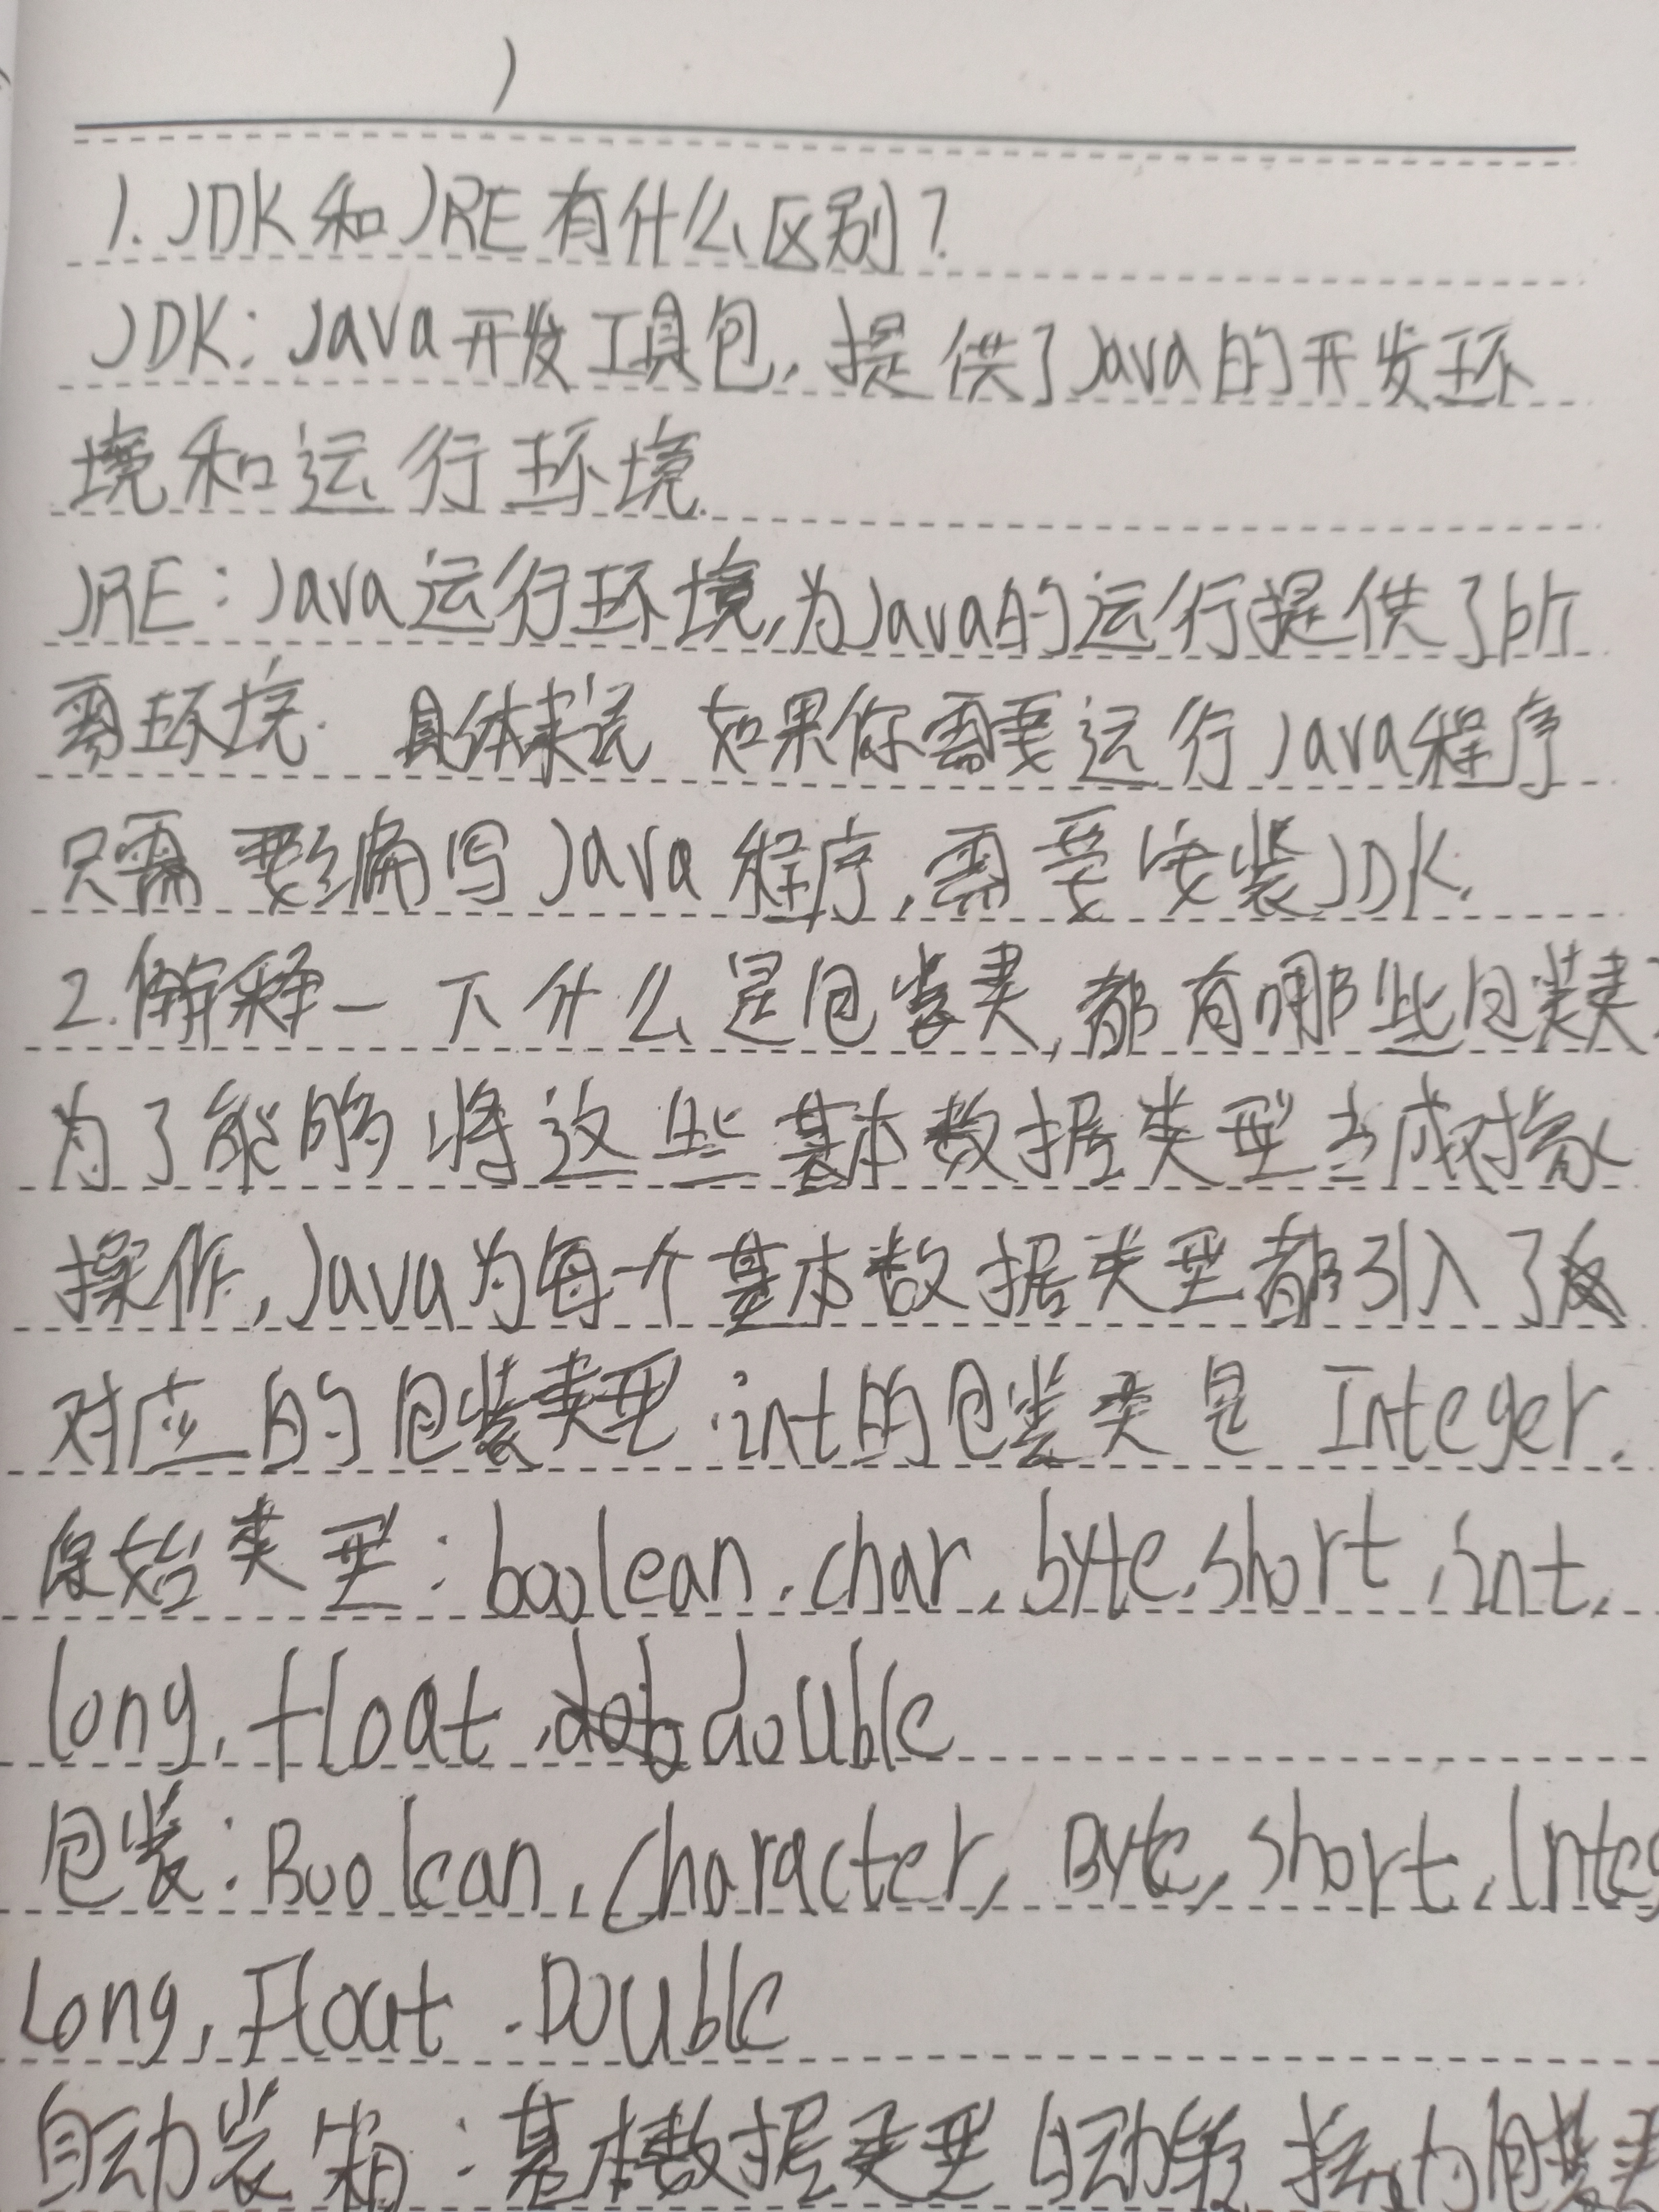 1. JDK和JRE有什么区别?
JDK: Java开发工具包,提供了Java的开发环
境和运行环境.
JRE:Java运行环境,为Java的运行提供了所
需环境. 具体来说 如果你需要运行Java程序
只需要编写Java程序,需要安装JDK.
2.解释一下什么是包装类,都有哪些包装类?
为了能够将这些基本数据类型当成对象
操作,Java为每个基本数据类型都引入了
对应的包装类型.int的包装类是Integer.
原始类型:boolean,char,byte,short,int,
long,float,double
包装:Boolean,Character,Byte,Short,Integ
Long,Float.Double
自动装箱:基本数据类型自动转换为包装类